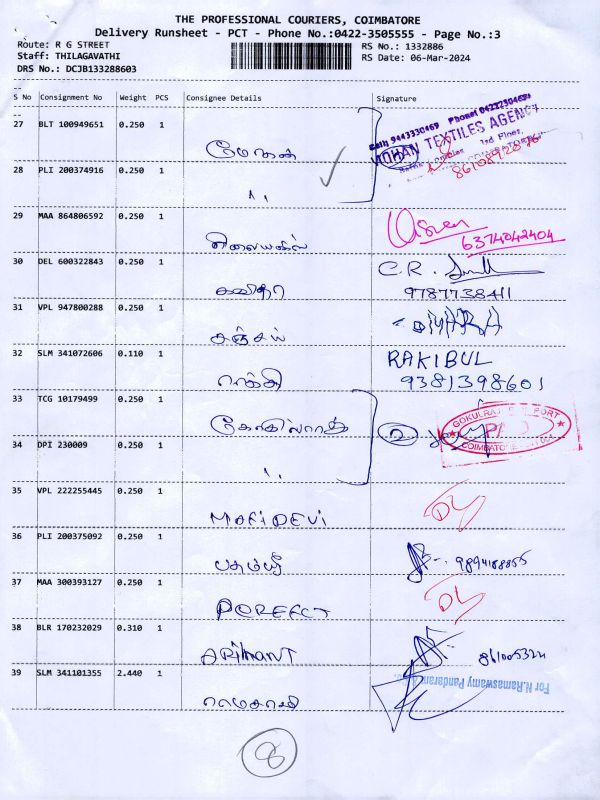 THE PROFESSIONAL COURIERS, COIMBATORE
Delivery Runsheet - PCT - Phone No.:0422-3505555 - Page No.:3
Route: R G STREET
Staff: THILAGAVATHI
DRS No.: DCJB133288603
RS No.: 1332886
RS Date: 06-Mar-2024
S No Consignment No Weight PCS Consignee Details Signature
27 BLT 100949651 0.250 1
MOHAN TEXTILES AGENCY
28 PLI 200374916 0.250 1
29 MAA 864806592 0.250 1
6374042404
30 DEL 600322843 0.250 1 கவிதா C.R.
9787738411
31 VPL 947800288 0.250 1 சஞ்சய்
32 SLM 341072606 0.110 1 ராக்கி RAKIBUL
9381398601
33 TCG 10179499 0.250 1
COIMBATORE
34 DPI 230009 0.250 1
35 VPL 222255445 0.250 1 MAFIDEVI
36 PLI 200375092 0.250 1
37 MAA 300393127 0.250 1 PERFECT
38 BLR 170232029 0.310 1 ARIHANT
39 SLM 341101355 2.440 1 ராமசாமி For N.Ramaswamy Pandaram
8